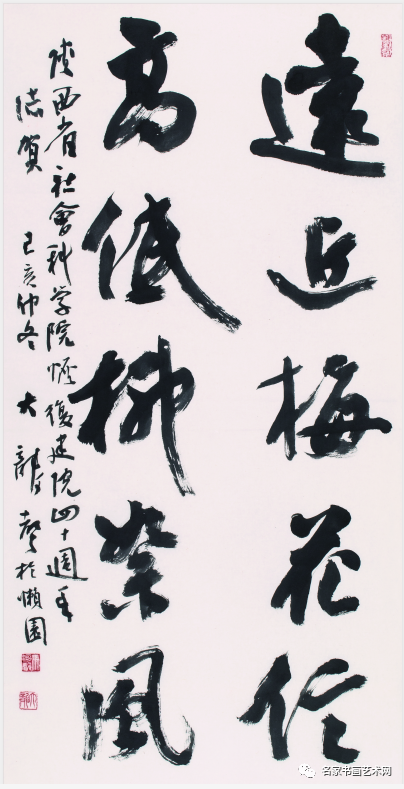 遠近梅花信
高低柳絮風
陝西省社會科学院恢復建院四十週年
誌賀 己亥仲冬 大龍 於懶園
名家书画艺术网